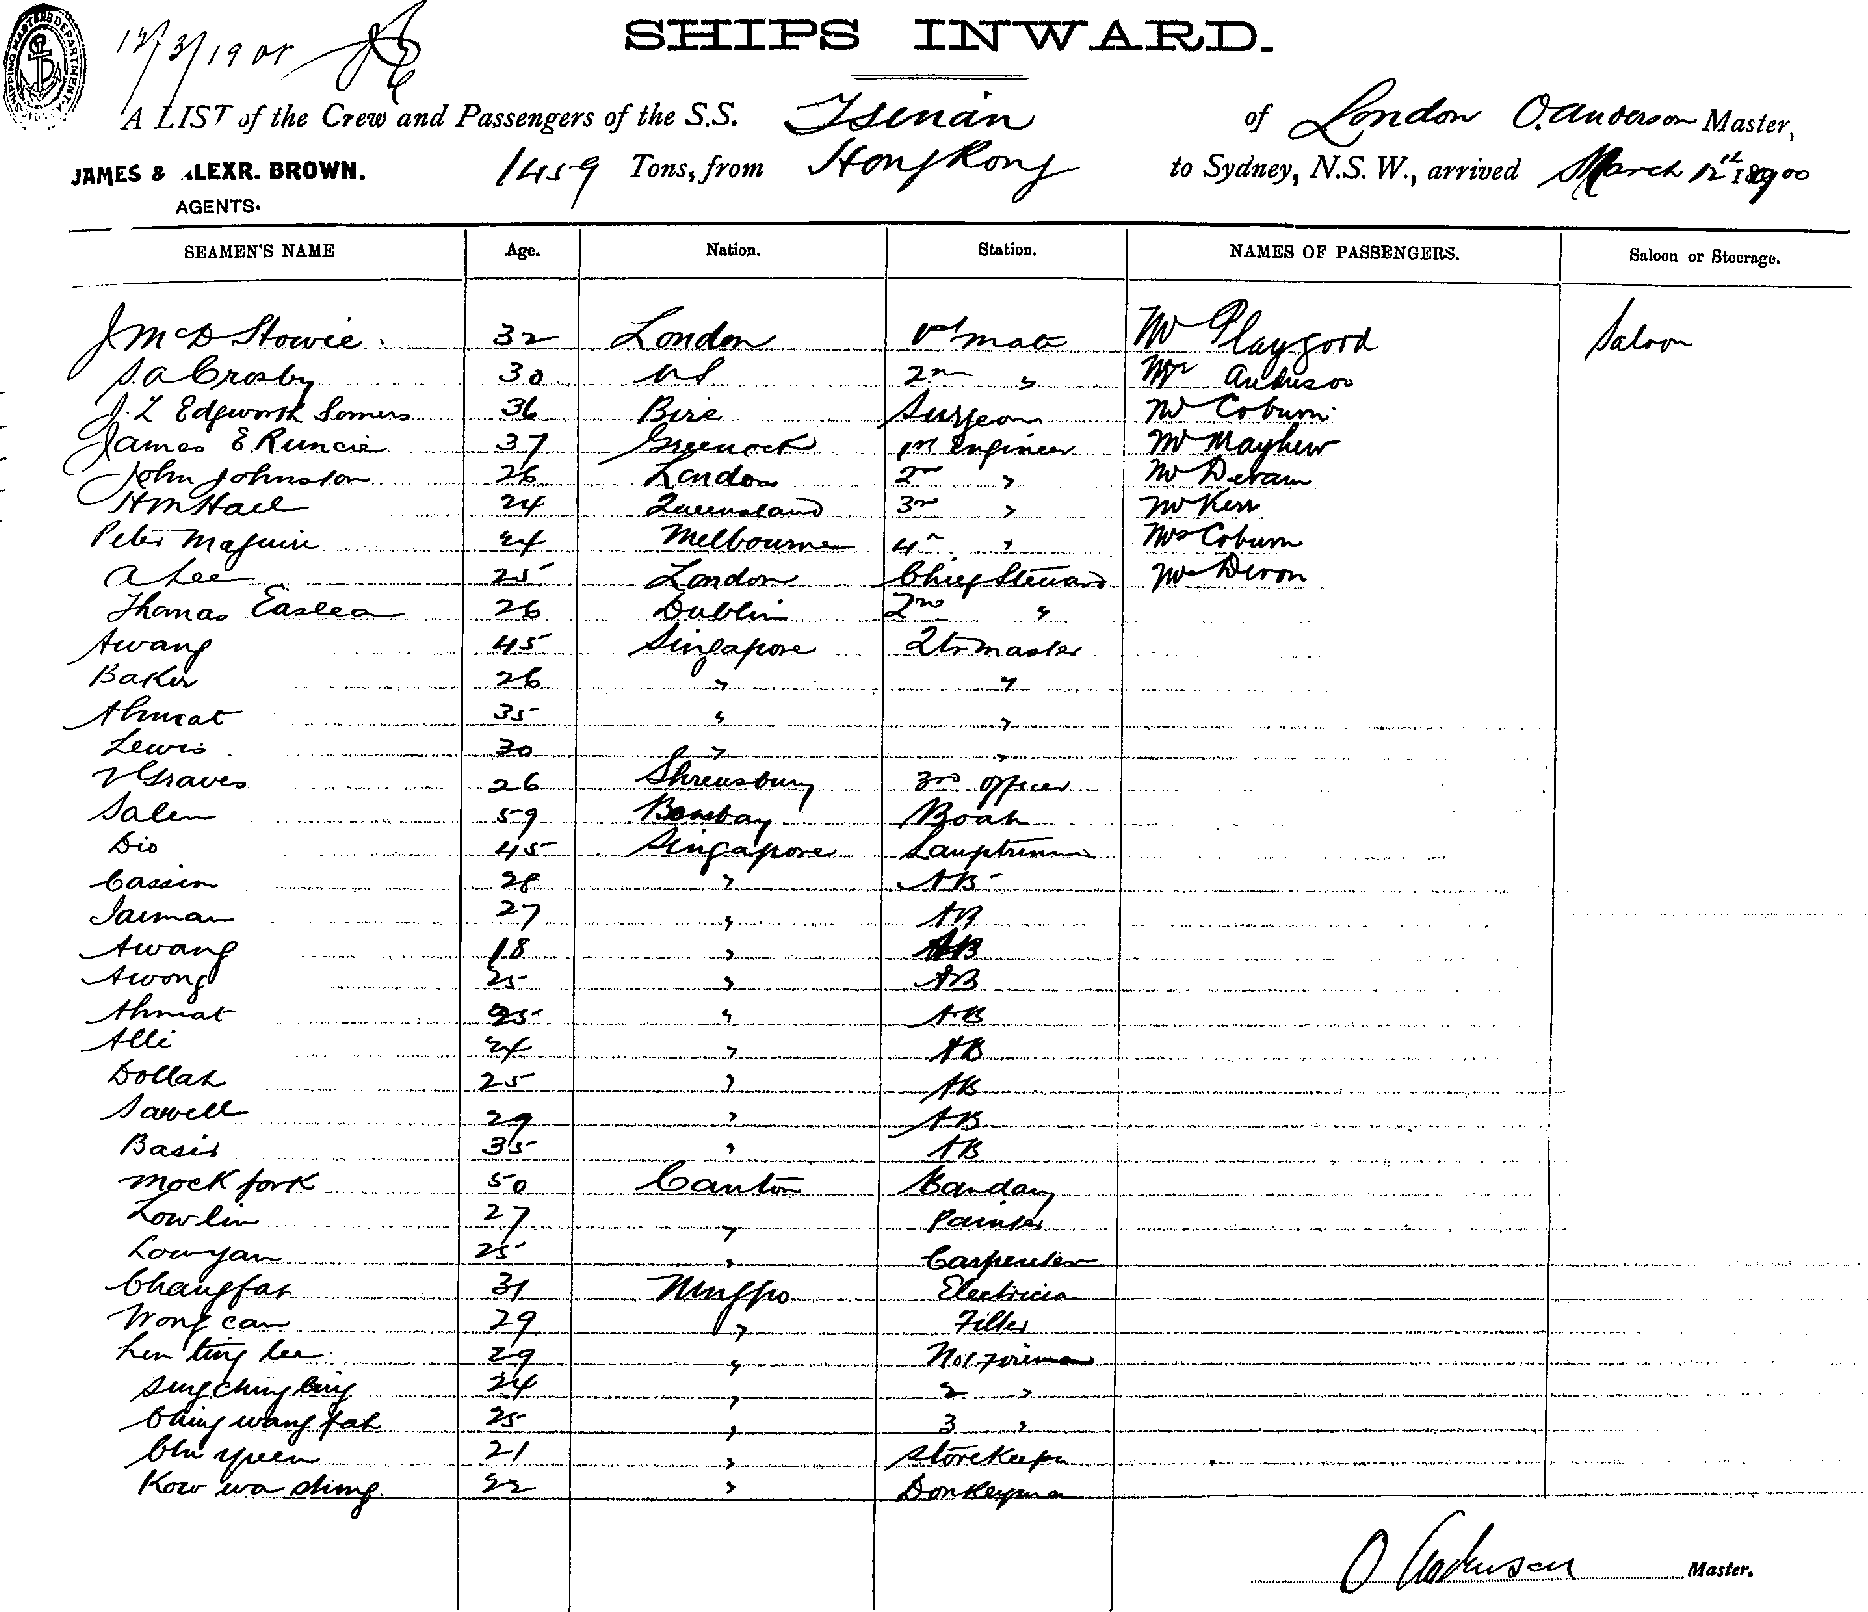 SHIPS INWARD.
12/3/19
A LIST of the Crew and Passengers of the S.S. Tsinan of London O. Anderson Master,
JAMES & ALEXR. BROWN. 1459 Tons, from Hong Kong to Sydney, N.S.W., arrived March 12th 1900
AGENTS.
SEAMEN'S NAME Age. Nation. Station. NAMES OF PASSENGERS. Saloon or Steerage.
J McD Howie 32 London 1st mate Mr Playgord Saloon
S. A Crosby 30 2nd " Mr Anderson
J. L Edgworth Somers 36 Surgeon Mr Coburn
James E Runcie 37 Greenock 1st Engineer Mr Mayhew
John Johnston 26 London 2nd " Mr
H M Hall 24 Queensland 3rd " Mr Kerr
Peter Maguire 24 Melbourne 4th " Mrs Coburn
A Lee 25 London Chief Steward
Thomas Easlea 26 Dublin 2nd "
Awang 45 Singapore Qtr master
Baker 26 " "
Ahmat 35 " "
Lewis 30 " "
V Graves 26 Shrewsbury 3rd Officer
Salem 59 Bombay
Dio 45 Singapore Lamptrimmer
Cassim 28 " AB
Jaiman 27 " AB
Awang 18 " AB
Awong 25 " AB
Ahmat 25 " AB
Alli 24 " AB
Dollah 25 " AB
Sawell 29 " AB
Basir 35 " AB
Mock fork 50 Canton
Low lin 27 " Painter
Low yan 25 " Carpenter
Changfat 31 Ningpo Electrician
Wong can 29 " Fitter
Len ting lee 29 " No1 Foreman
Sing ching bing 24 " 2 "
Ching wang fah 25 " 3 "
Chu yuen 21 " Storekeeper
Kow wa shing 22 " Donkeyman
O Anderson Master.